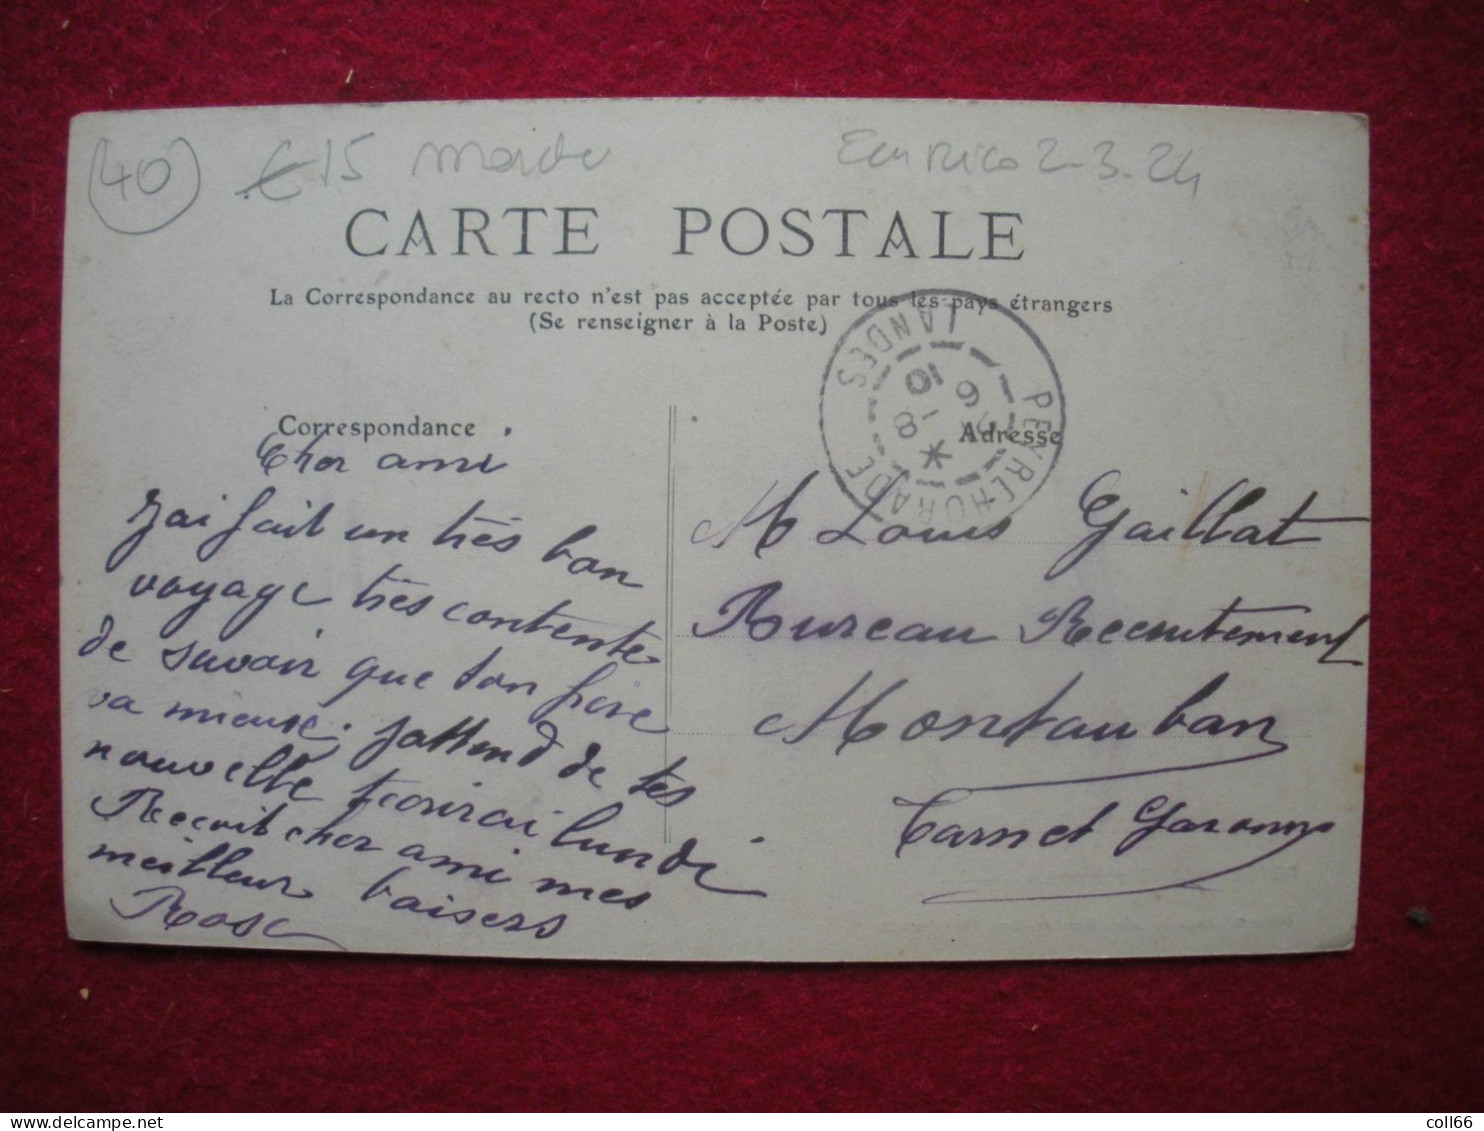 (40)
€15
2-3-24
CARTE POSTALE
La Correspondance au recto n'est pas acceptée par tous les pays étrangers
(Se renseigner à la Poste)
PEYREHORADE
LANDES
Correspondance
Adresse
Cher ami
J'ai fait un très bon
voyage très contente
de savoir que ton frère
va mieux; J'attend de tes
nouvelle tecrirai lundi
Recoit cher ami mes
meilleur baisers
Rose
M Louis Gaillat
Bureau Recrutement
Montauban
Tarn et Garonne
coll66